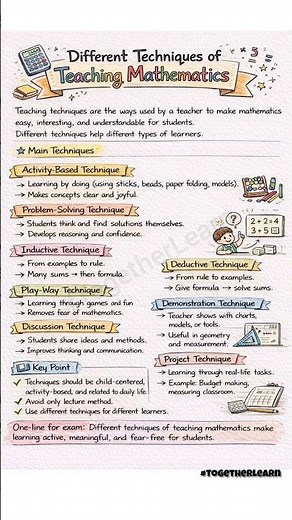 Different Techniques of
Teaching Mathematics
Teaching techniques are the ways used by a teacher to make mathematics
easy, interesting, and understandable for students.
Different techniques help different types of learners.
Main Techniques
Activity-Based Technique
→ Learning by doing (using sticks, beads, paper folding, models).
→ Makes concepts clear and joyful.
Problem-Solving Technique
→ Students think and find solutions themselves.
→ Develops reasoning and confidence.
?
2+2=4
3+5=
Inductive Technique
→ From examples to rule.
→ Many sums → then formula.
Deductive Technique
→ From rule to examples.
→ Give formula → solve sums.
Play-Way Technique
→ Learning through games and fun
→ Removes fear of mathematics.
Demonstration Technique
→ Teacher shows with charts,
models, or tools.
→ Useful in geometry
and measurement.
Discussion Technique
→ Students share ideas and methods.
→ Improves thinking and communication.
Project Technique
→ Learning through real-life tasks.
→ Example: Budget making,
measuring classroom.
Key Point
✓ Techniques should be child-centered,
activity-based, and related to daily life.
✓ Avoid only lecture method.
✓ Use different techniques for different learners.
One-line for exam: Different techniques of teaching mathematics make
learning active, meaningful, and fear-free for students.
#TOGETHERLEARN